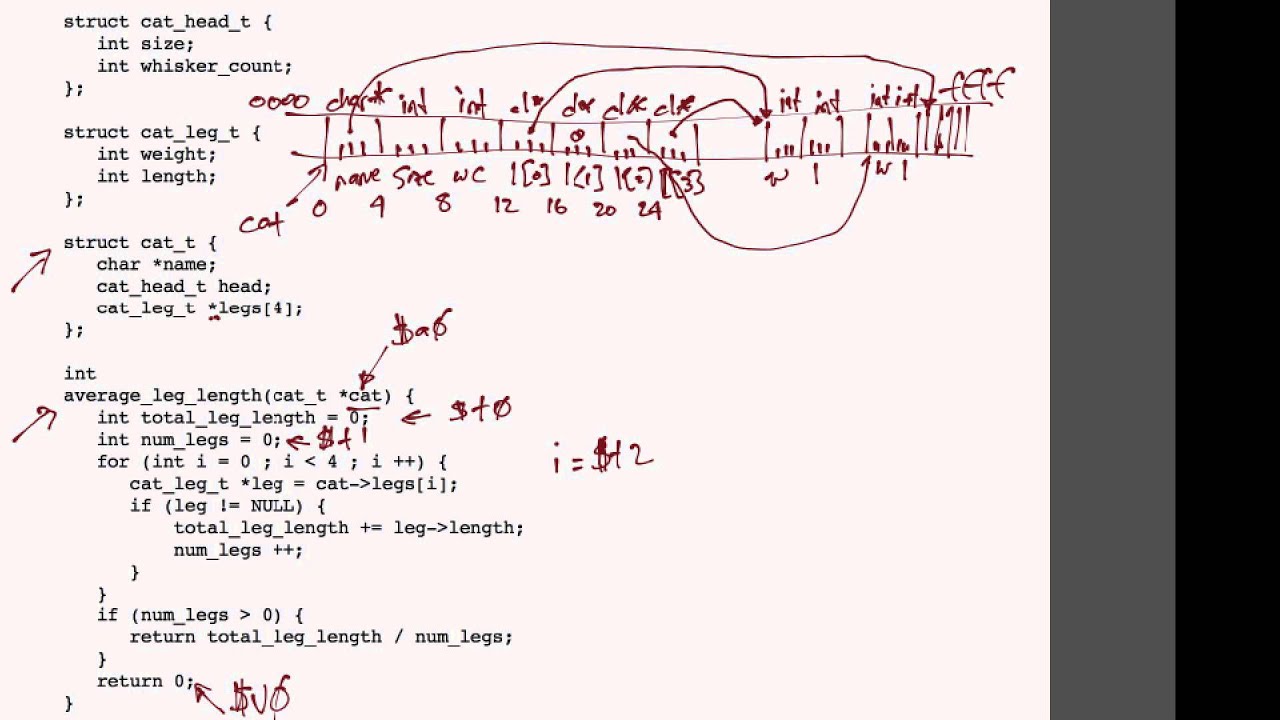 struct cat_head_t {
int size;
int whisker_count;
};
0000 char* int int cl* cl* cl* cl* int int int int ffff
struct cat_leg_t {
int weight;
int length;
};
name size wc l[0] l[1] l[2] l[3] w l w l
cat 0 4 8 12 16 20 24
struct cat_t {
char *name;
cat_head_t head;
cat_leg_t *legs[4];
};
$a0
int
average_leg_length(cat_t *cat) {
int total_leg_length = 0; $t0
int num_legs = 0; $t1
for (int i = 0 ; i < 4 ; i ++) { i = $t2
cat_leg_t *leg = cat->legs[i];
if (leg != NULL) {
total_leg_length += leg->length;
num_legs ++;
}
}
if (num_legs > 0) {
return total_leg_length / num_legs;
}
return 0; $v0
}